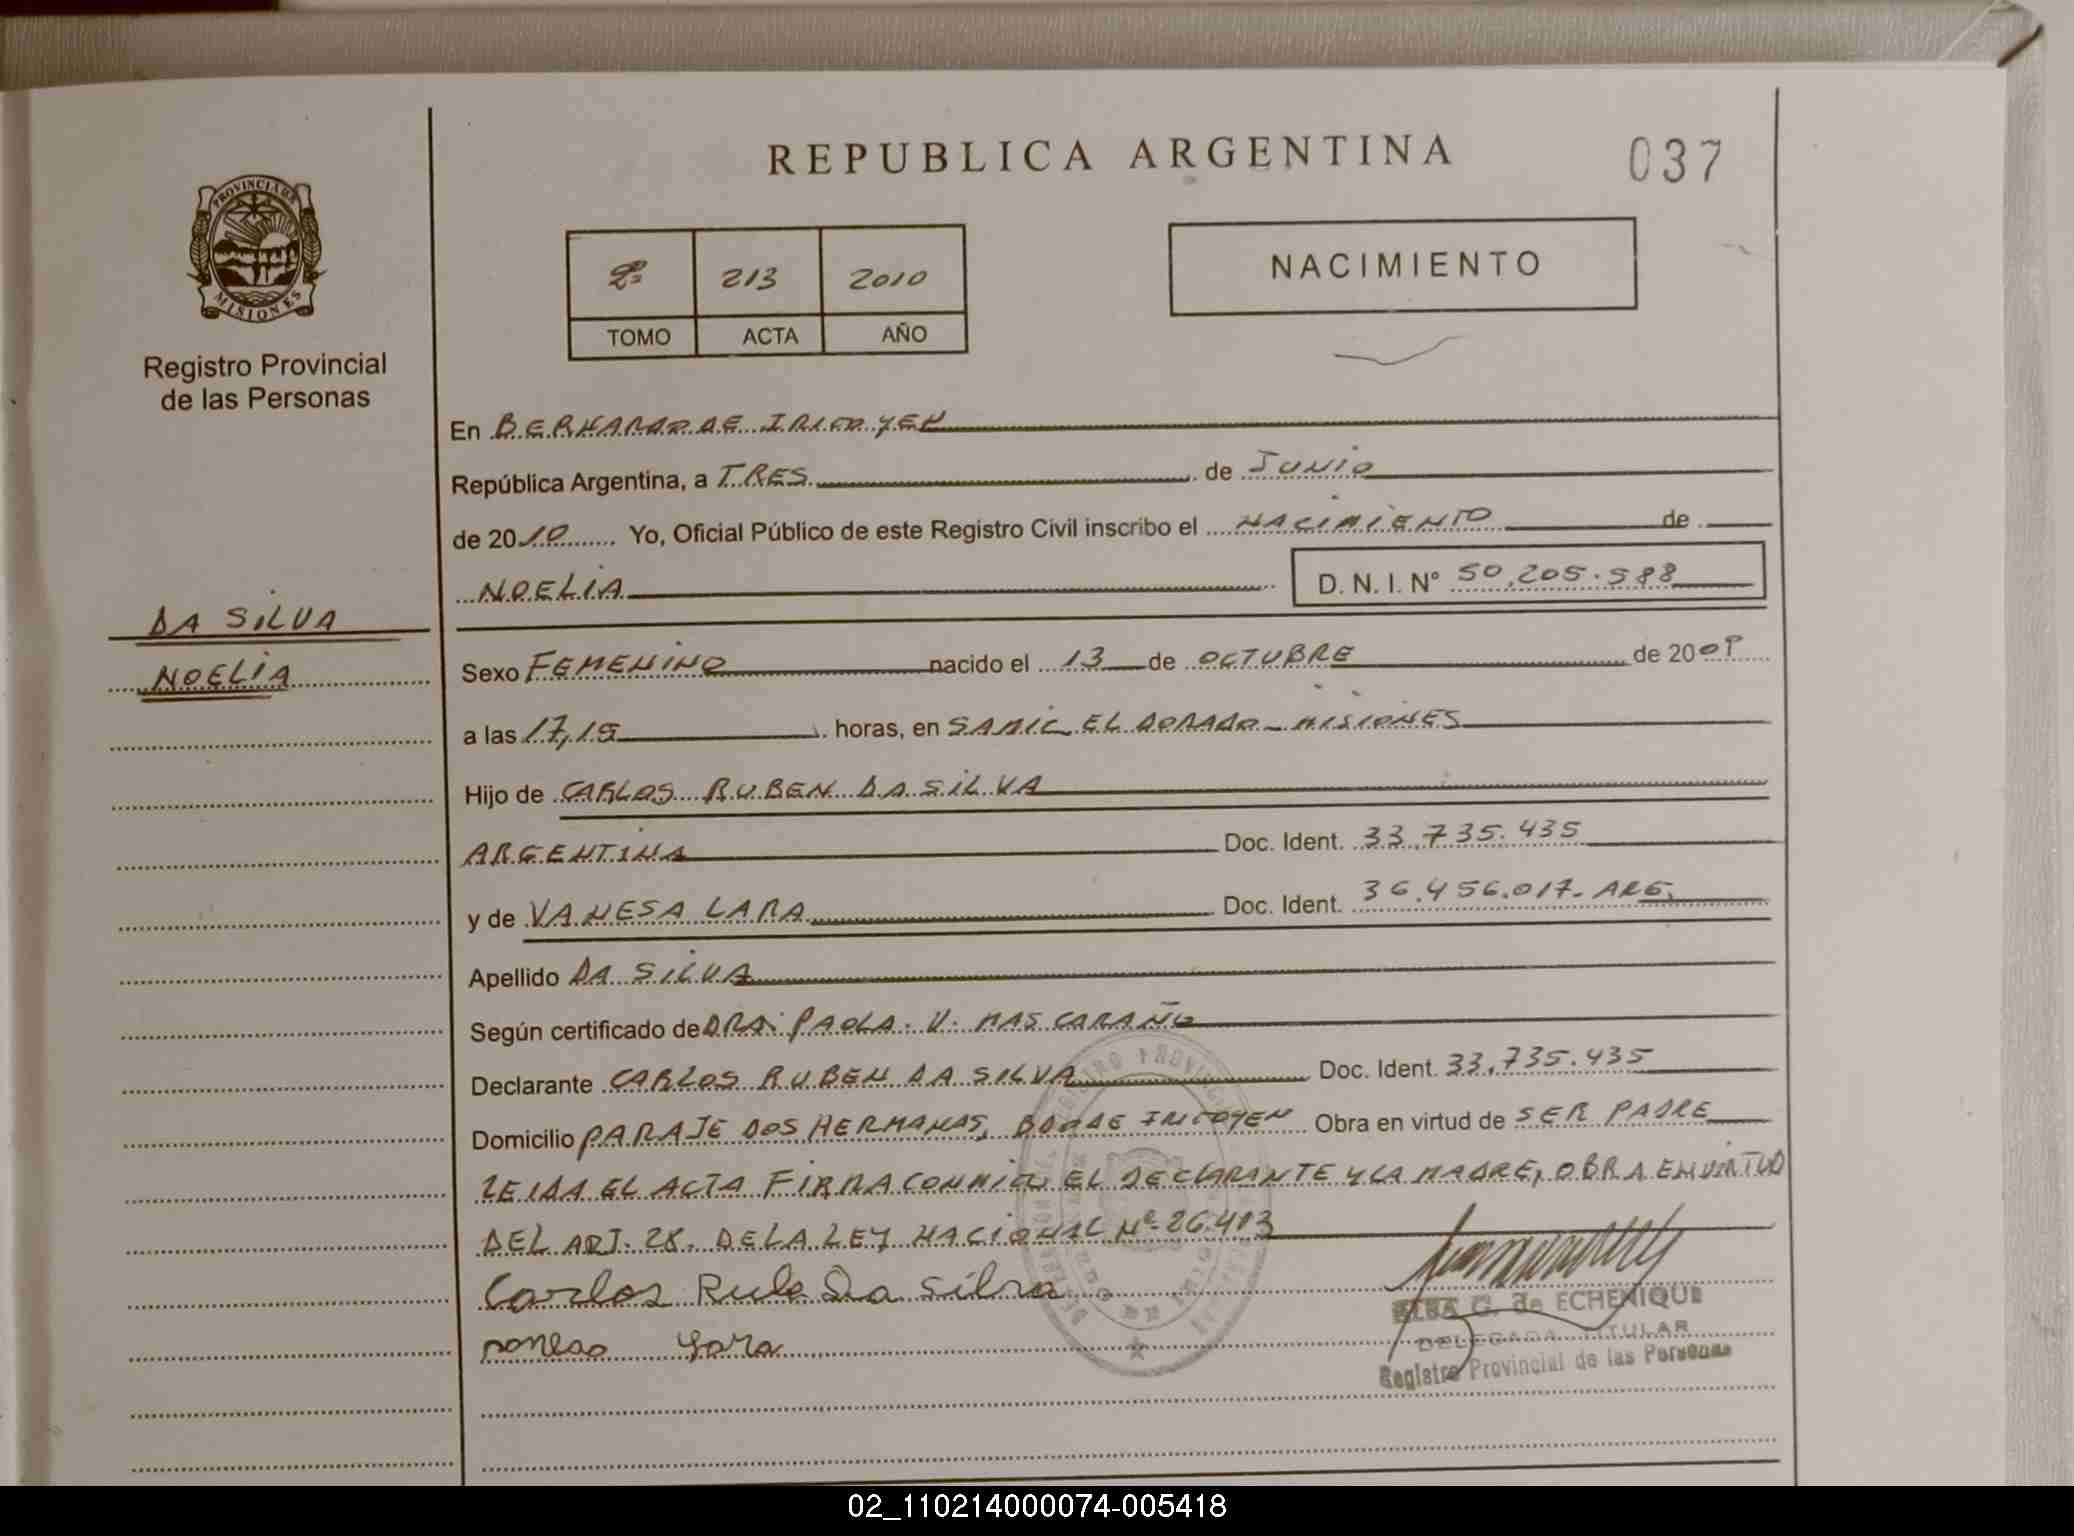 REPUBLICA ARGENTINA
037
PROVINCIA DE
MISIONES
Registro Provincial
de las Personas
2º 213 2010
TOMO ACTA AÑO
NACIMIENTO
En BERNARDO DE IRIGOYEN
República Argentina, a TRES de JUNIO
de 2010 Yo, Oficial Público de este Registro Civil inscribo el NACIMIENTO de
NOELIA D. N. I. Nº 50.205.588
DA SILVA
NOELIA
Sexo FEMENINO nacido el 13 de OCTUBRE de 2009
a las 17,15 horas, en SAMIC EL DORADO - MISIONES
Hijo de CARLOS RUBEN DA SILVA
ARGENTINA Doc. Ident. 33.735.435
y de VANESA LARA Doc. Ident. 36.456.017. ARG.
Apellido DA SILVA
Según certificado de DRA. PAOLA. V. MASCARAÑO
Declarante CARLOS RUBEN DA SILVA Doc. Ident. 33.735.435
Domicilio PARAJE DOS HERMANAS, BDO DE IRIGOYEN Obra en virtud de SER PADRE
LEIDA EL ACTA FIRMA CONMIGO EL DECLARANTE Y LA MADRE, OBRA EN VIRTUD
DEL ART. 28. DE LA LEY NACIONAL Nº 26.413
Carlos Rube Da Silva
ELBA G. de ECHENIQUE
DELEGADA TITULAR
Registro Provincial de las Personas
02_110214000074-005418